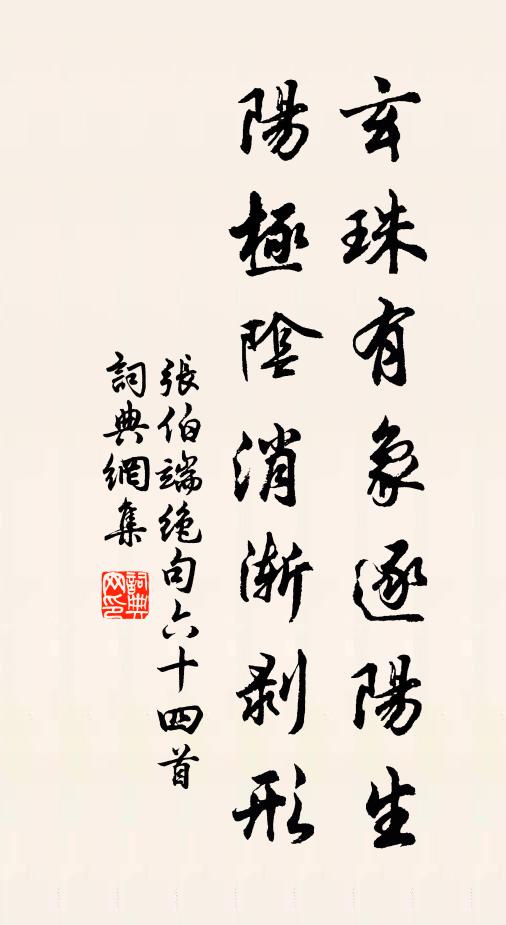 玄珠有象逐陽生
陽極陰消漸剥形
張伯端絶句六十四首
詞典網集
詞典網印